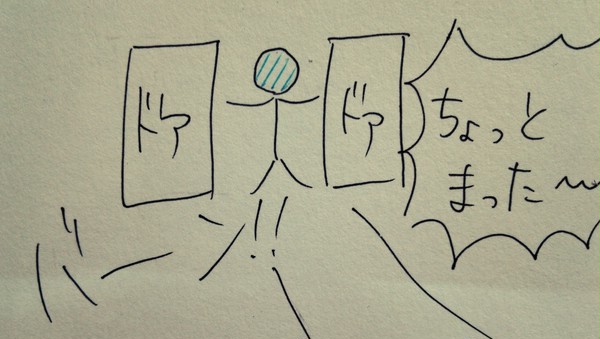 ドア
ドア
ちょっと
まった〜
バーン!!